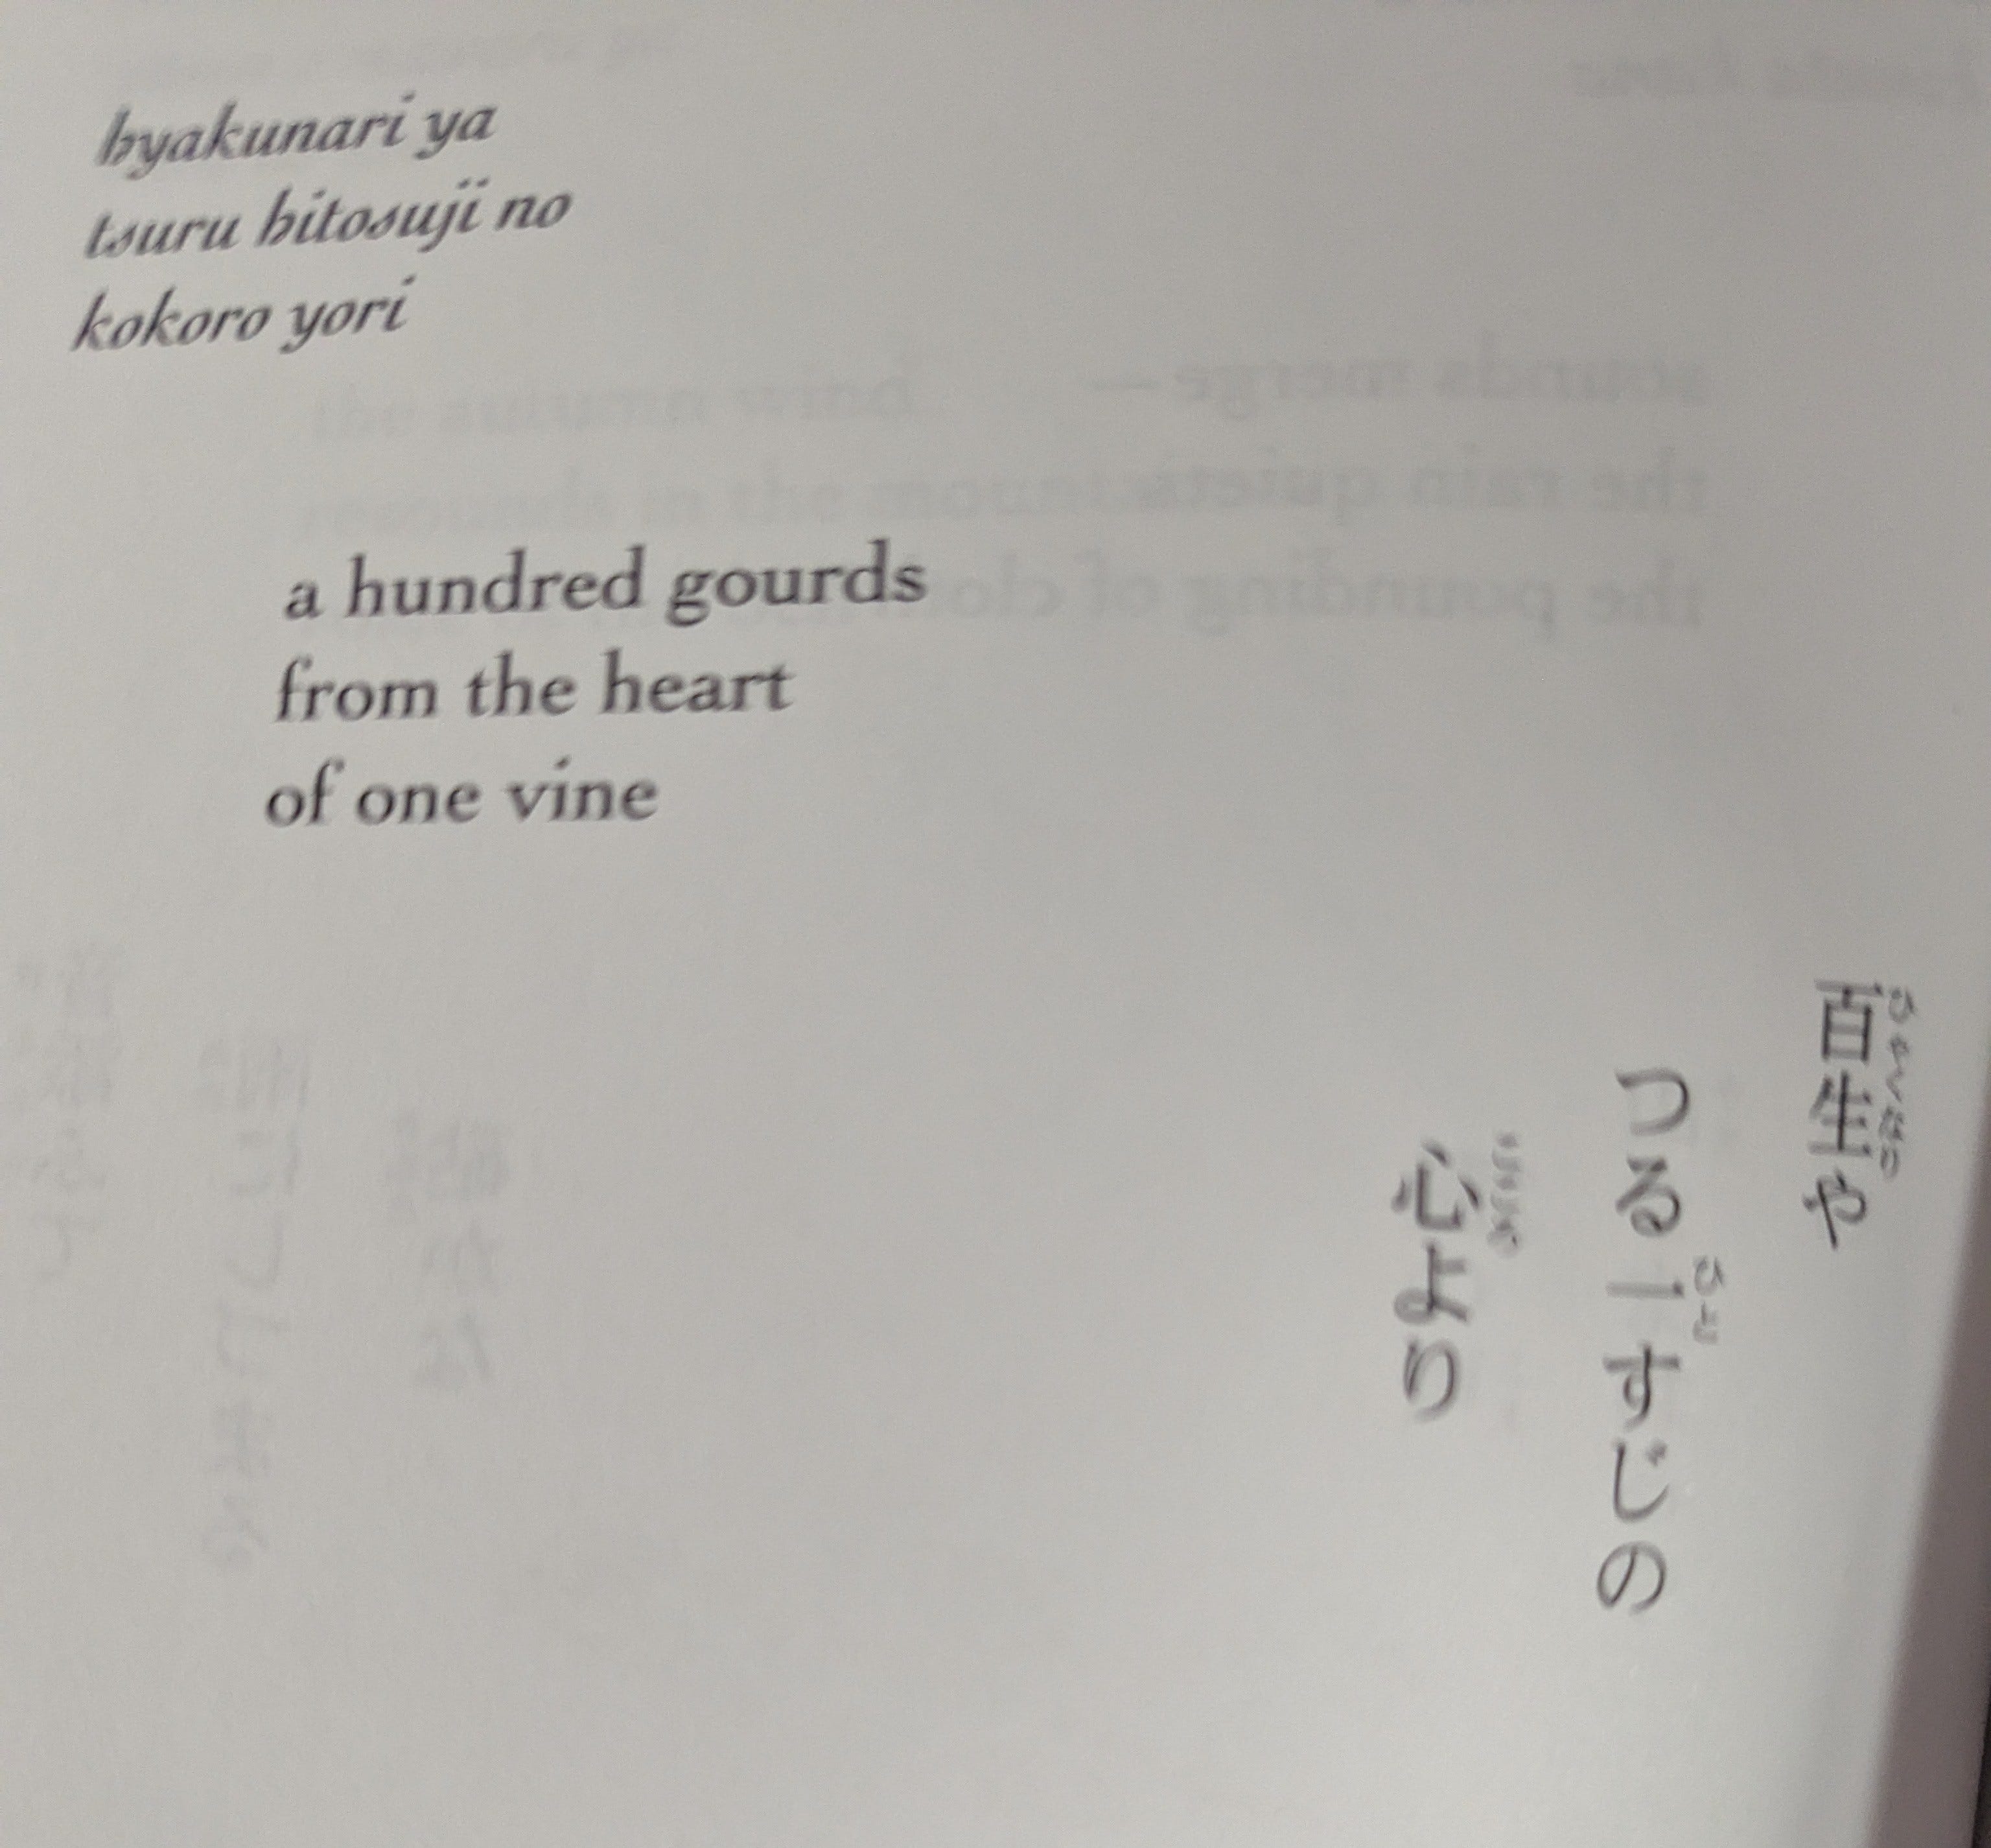 hyakunari ya
tsuru hitosuji no
kokoro yori
a hundred gourds
from the heart
of one vine
百生や
ひゃくなり
つる一すじの
ひと
心より
こころ